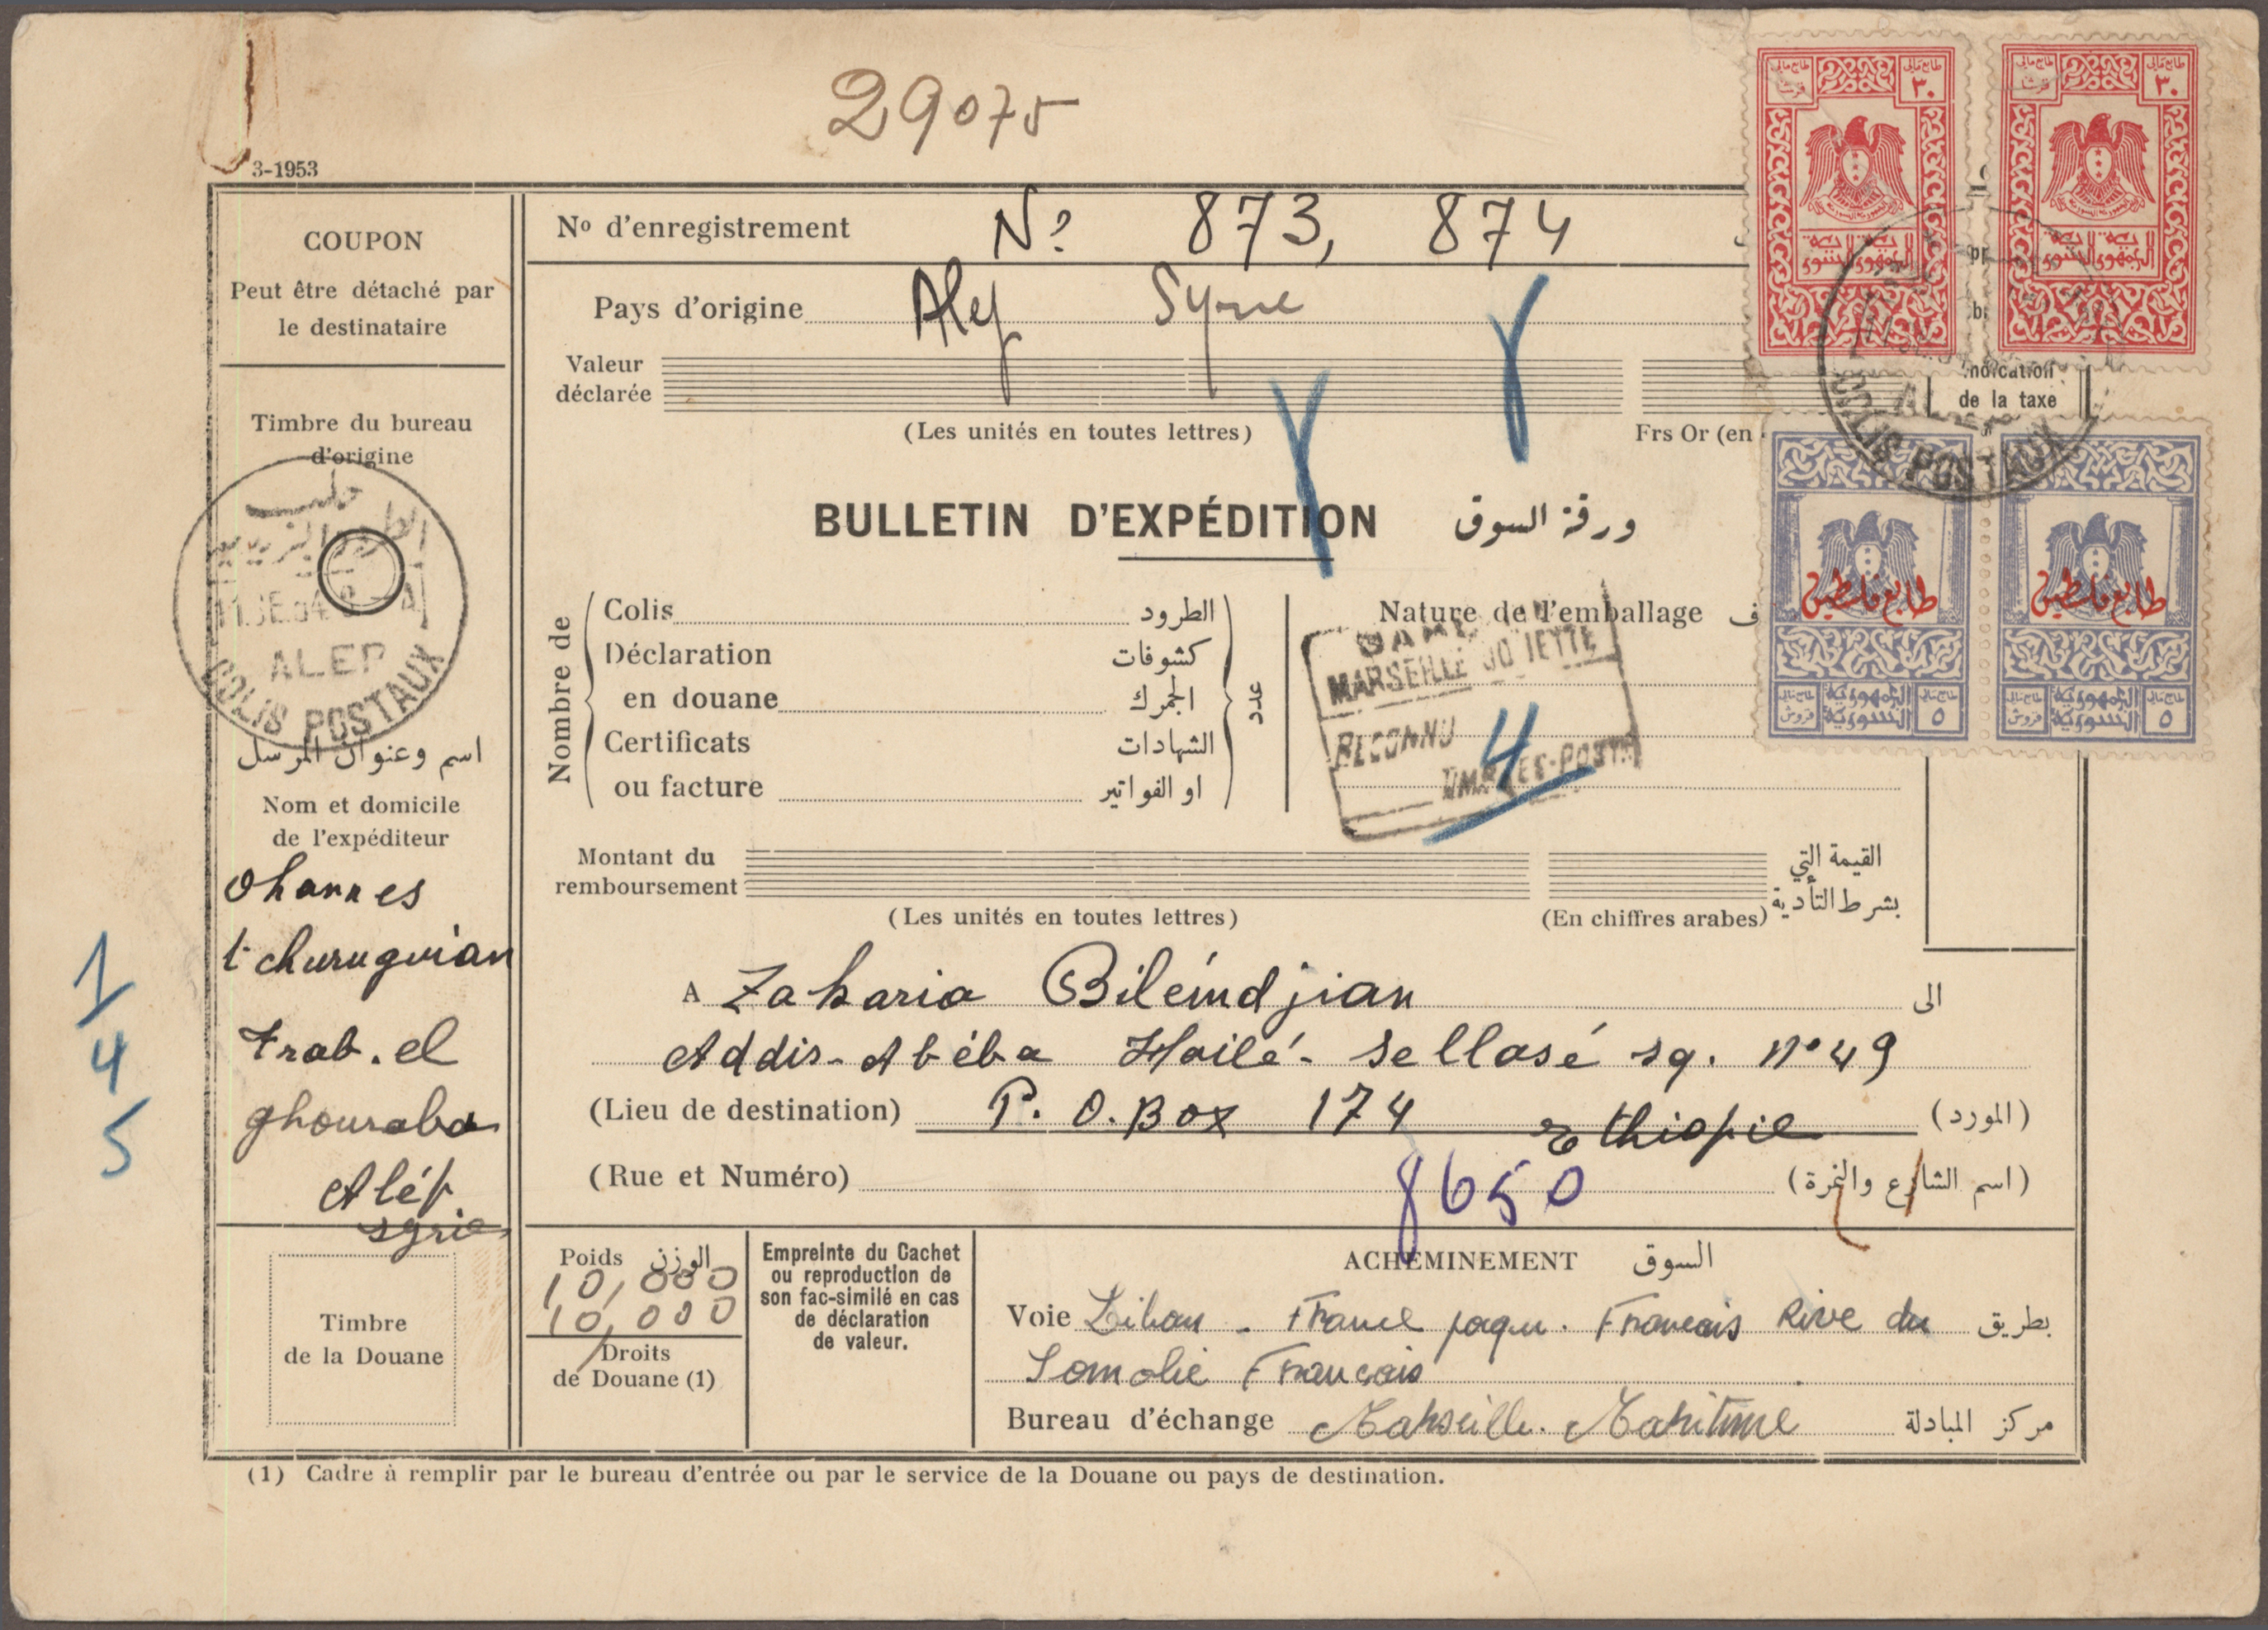 29075
3-1953
COUPON
Peut être détaché par
le destinataire
Timbre du bureau
d'origine
حلب
11 SE 54
ALEP
COLIS POSTAUX
اسم وعنوان المرسل
Nom et domicile
de l'expéditeur
Ohannes
tchuruguian
trab. el
ghouraba
Alép
syrie
1
4
5
Timbre
de la Douane
Nº d'enregistrement Nº 873, 874
Pays d'origine Alep Syrie
Valeur
déclarée
(Les unités en toutes lettres)
Frs Or (en
BULLETIN D'EXPÉDITION ورقة السوق
Nombre de
Colis الطرود
Déclaration كشوفات
en douane الجمرك
Certificats الشهادات
ou facture او الفواتير
عدد
Nature de l'emballage
MARSEILLE JOLIETTE
RECONNU
TIMBRES-POSTE
4
طابع مالي
٣٠
الجمهورية السورية
طابع مالي
٣٠
الجمهورية السورية
Indication
de la taxe
ALEP
COLIS POSTAUX
طابع فلسطين
الجمهورية السورية
٥ قروش
طابع فلسطين
الجمهورية السورية
٥ قروش
Montant du
remboursement
(Les unités en toutes lettres)
(En chiffres arabes)
القيمة التي
بشرط التأدية
A Zakaria Biléindjian الى
Addis-Abéba Hailé-Sellasé sq. nº 49
(Lieu de destination) P. O. Box 174 Ethiopie (المورد)
(Rue et Numéro) 8650 (اسم الشارع والنمرة)
Poids الوزن
10,000
10,000
Droits
de Douane (1)
Empreinte du Cachet
ou reproduction de
son fac-similé en cas
de déclaration
de valeur.
ACHEMINEMENT السوق
Voie Liban - France paqu. Francais Rive du بطريق
Somalie Francais
Bureau d'échange Marseille. Maritime مركز المبادلة
(1) Cadre à remplir par le bureau d'entrée ou par le service de la Douane ou pays de destination.